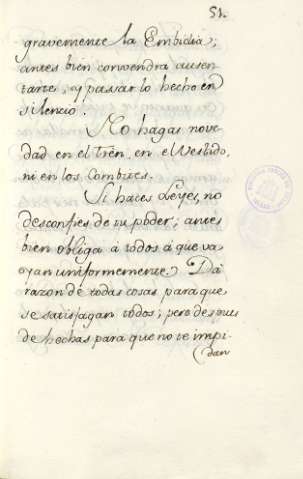 51.
gravemente la Embidia;
antes bien convendra ausen
tarte, y passar lo hecho en
silencio.
No hagas nove
dad en el tren, en el Vestido,
ni en los Combites.
Si haces Leyes, no
desconfies de tu poder; antes
bien obliga à todos à que va
yan uniformemente. Dà
razon de todas cosas para que
se satisfagan todos; pero despues
de hechas para que no te impi-
dan